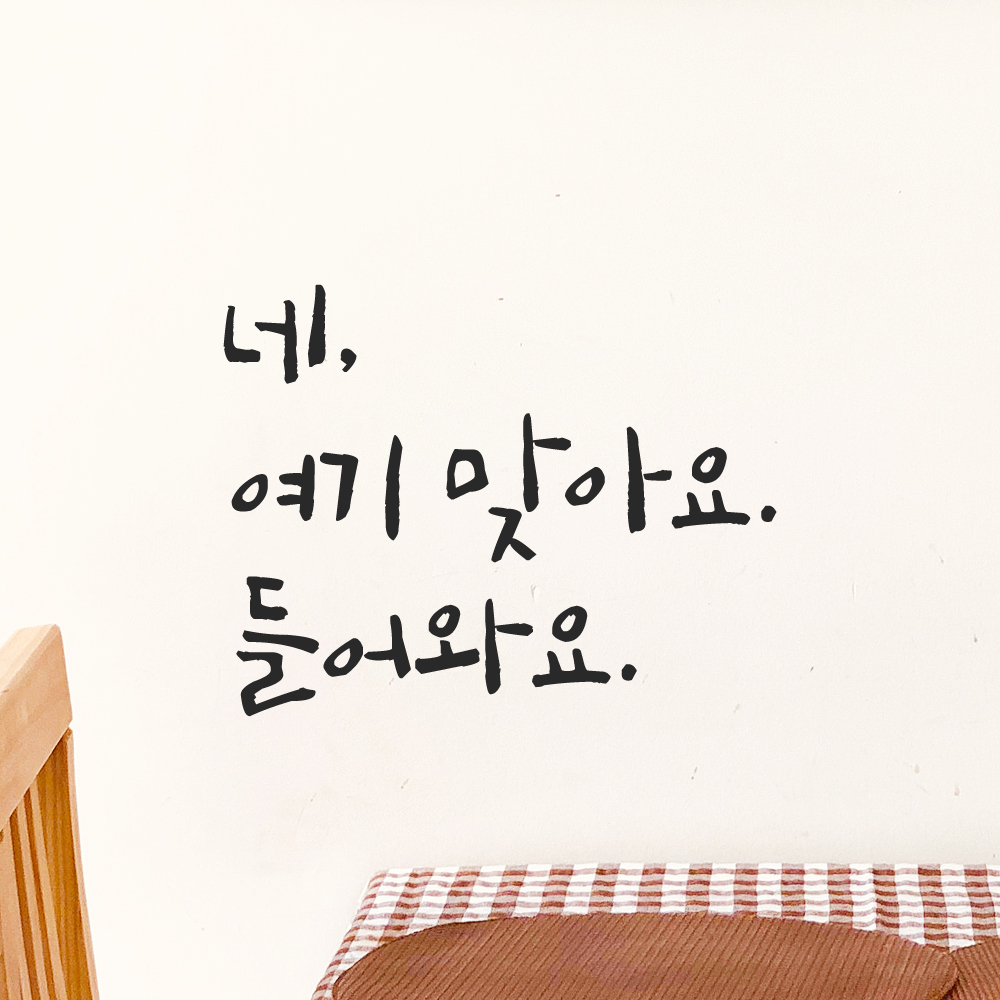 네,
여기 맞아요.
들어와요.